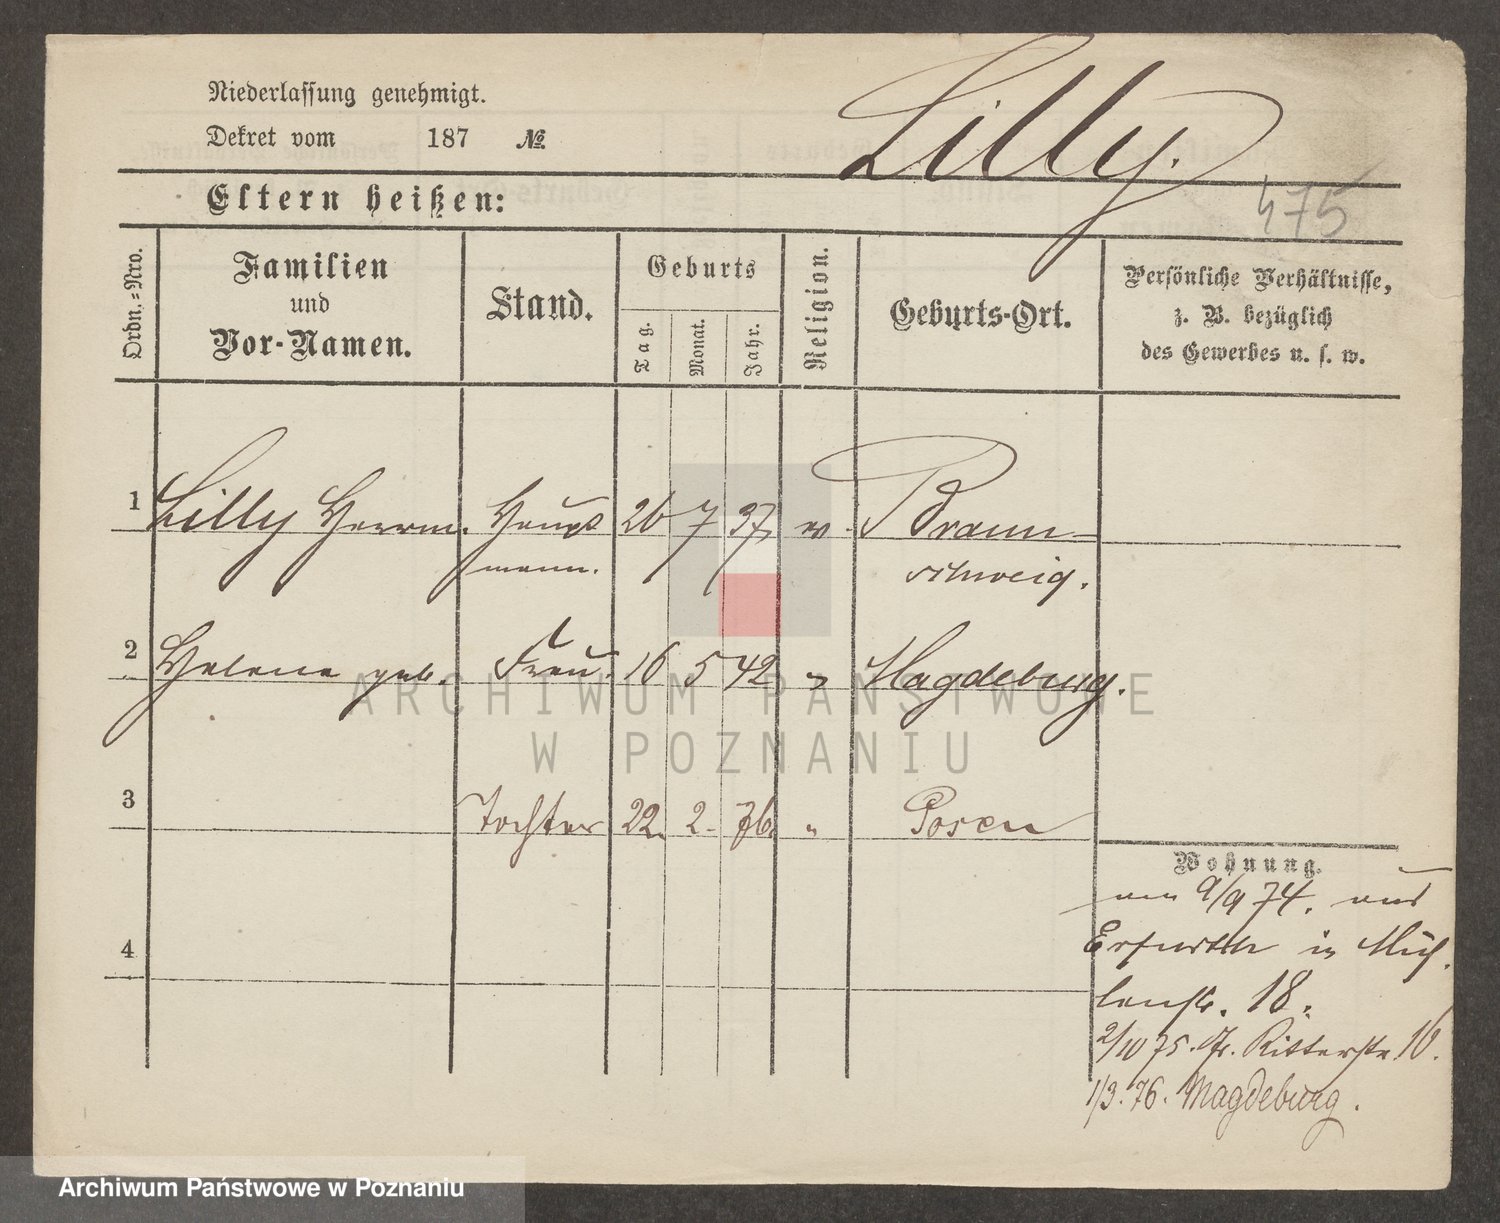 Niederlassung genehmigt.
Dekret vom 187 №
Lilly.
475
Eltern heißen:
Ordn.-Nro.
Familien
und
Vor-Namen.
Stand.
Geburts
Tag.
Monat.
Jahr.
Religion.
Geburts-Ort.
Persönliche Verhältnisse,
z. B. bezüglich
des Gewerbes u. s. w.
1 Lilly Herrm. Haupt 26 7 37 ev. Braun-
mann. schweig.
2 Helene geb. Frau. 16 5 42 " Magdeburg.
ARCHIWUM PAŃSTWOWE
W POZNANIU
3 Tochter 22. 2. 76. " Posen
Wohnung.
am 9/9 74. aus
Erfurth in Müh-
lenstr. 18.
2/10 75. Ritterstr. 16.
1/3. 76. Magdeburg.
4
Archiwum Państwowe w Poznaniu